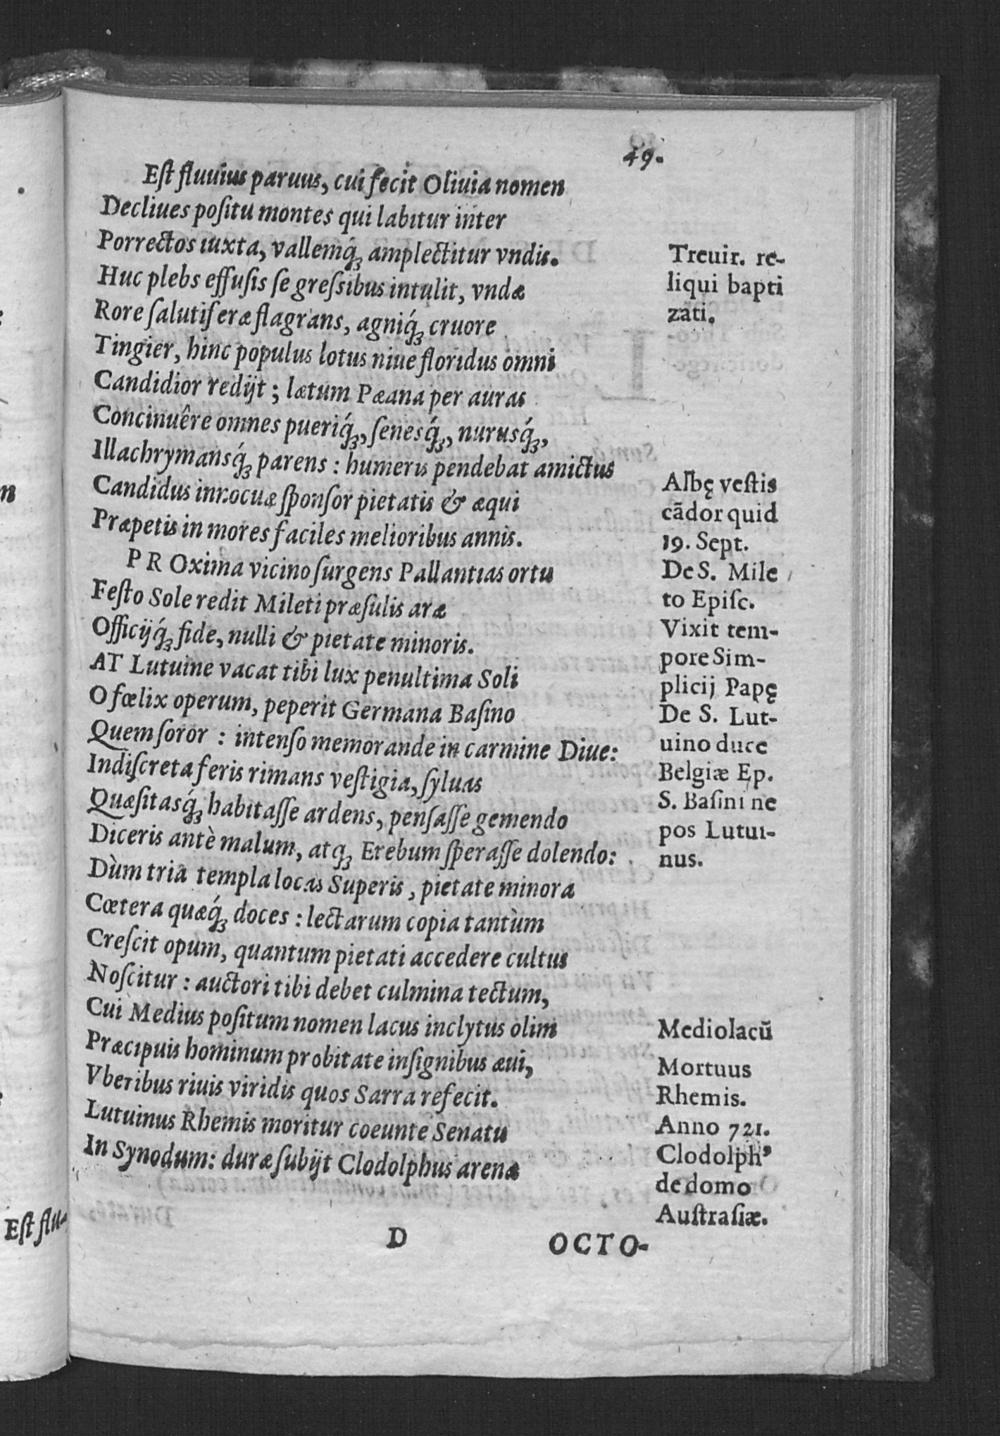 49.
Eſt fluuius paruus, cui fecit Oliuia nomen
Decliues poſitu montes qui labitur inter
Porrectos iuxta, vallemq́ꝫ amplectitur vndis.
Huc plebs effuſis ſe greſsibus intulit, vndæ
Rore ſalutiferæ flagrans, agniq́ꝫ cruore
Tingier, hinc populus lotus niue floridus omni
Candidior redijt ; lætum Pæana per auras
Concinuêre omnes pueriq́ꝫ, ſenesq́ꝫ, nurusq́ꝫ,
Illachrymansq́ꝫ parens : humeris pendebat amictus
Candidus innocuæ ſponſor pietatis & æqui
Præpetis in mores faciles melioribus annis.
PROxima vicino ſurgens Pallantias ortu
Feſto Sole redit Mileti præſulis aræ
Officijq́ꝫ fide, nulli & pietate minoris.
AT Lutuine vacat tibi lux penultima Soli
O fœlix operum, peperit Germana Baſino
Quem ſoror : intenſo memorande in carmine Diue:
Indiſcreta feris rimans veſtigia, ſyluas
Quæſitasq́ꝫ habitaſſe ardens, penſaſſe gemendo
Diceris antè malum, atqꝫ Erebum ſperaſſe dolendo:
Dùm tria templa locas Superis, pietate minora
Cœtera quæq́ꝫ doces : lectarum copia tantùm
Creſcit opum, quantum pietati accedere cultus
Noſcitur : auctori tibi debet culmina tectum,
Cui Medius poſitum nomen lacus inclytus olim
Præcipuis hominum probitate inſignibus æui,
Vberibus riuis viridis quos Sarra refecit.
Lutuinus Rhemis moritur coeunte Senatu
In Synodum: duræ ſubijt Clodolphus arenæ
Treuir. re-
liqui bapti
zati.
Albę veſtis
cādor quid
19. Sept.
De S. Mile
to Epiſc.
Vixit tem-
pore Sim-
plicij Papę
De S. Lut-
uino duce
Belgiæ Ep.
S. Baſini ne
pos Lutui-
nus.
Mediolacū
Mortuus
Rhemis.
Anno 721.
Clodolphꝰ
de domo
Auſtraſiæ.
D
OCTO-
Eſt flu-